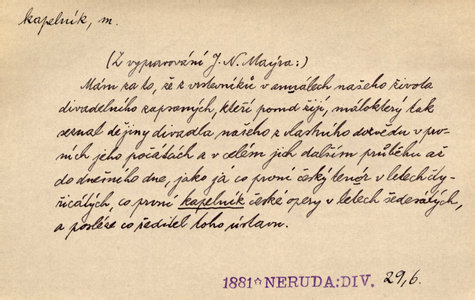 kapelník, m.
(Z vypravování J. N. Maýra:)
Mám za to, že z vrstevníků v annálech našeho života
divadelního zapsaných, kteří posud žijí, málokterý tak
seznal dějiny divadla našeho z vlastního dozvědu v prv-
ních jeho počátcích a v celém jich dalším průběhu až
do dnešního dne, jako já co první český tenor v letech čty-
řicátých, co první kapelník české opery v letech šedesátých,
a posléze co ředitel toho ústavu.
1881* NERUDA: DIV. 29,6.